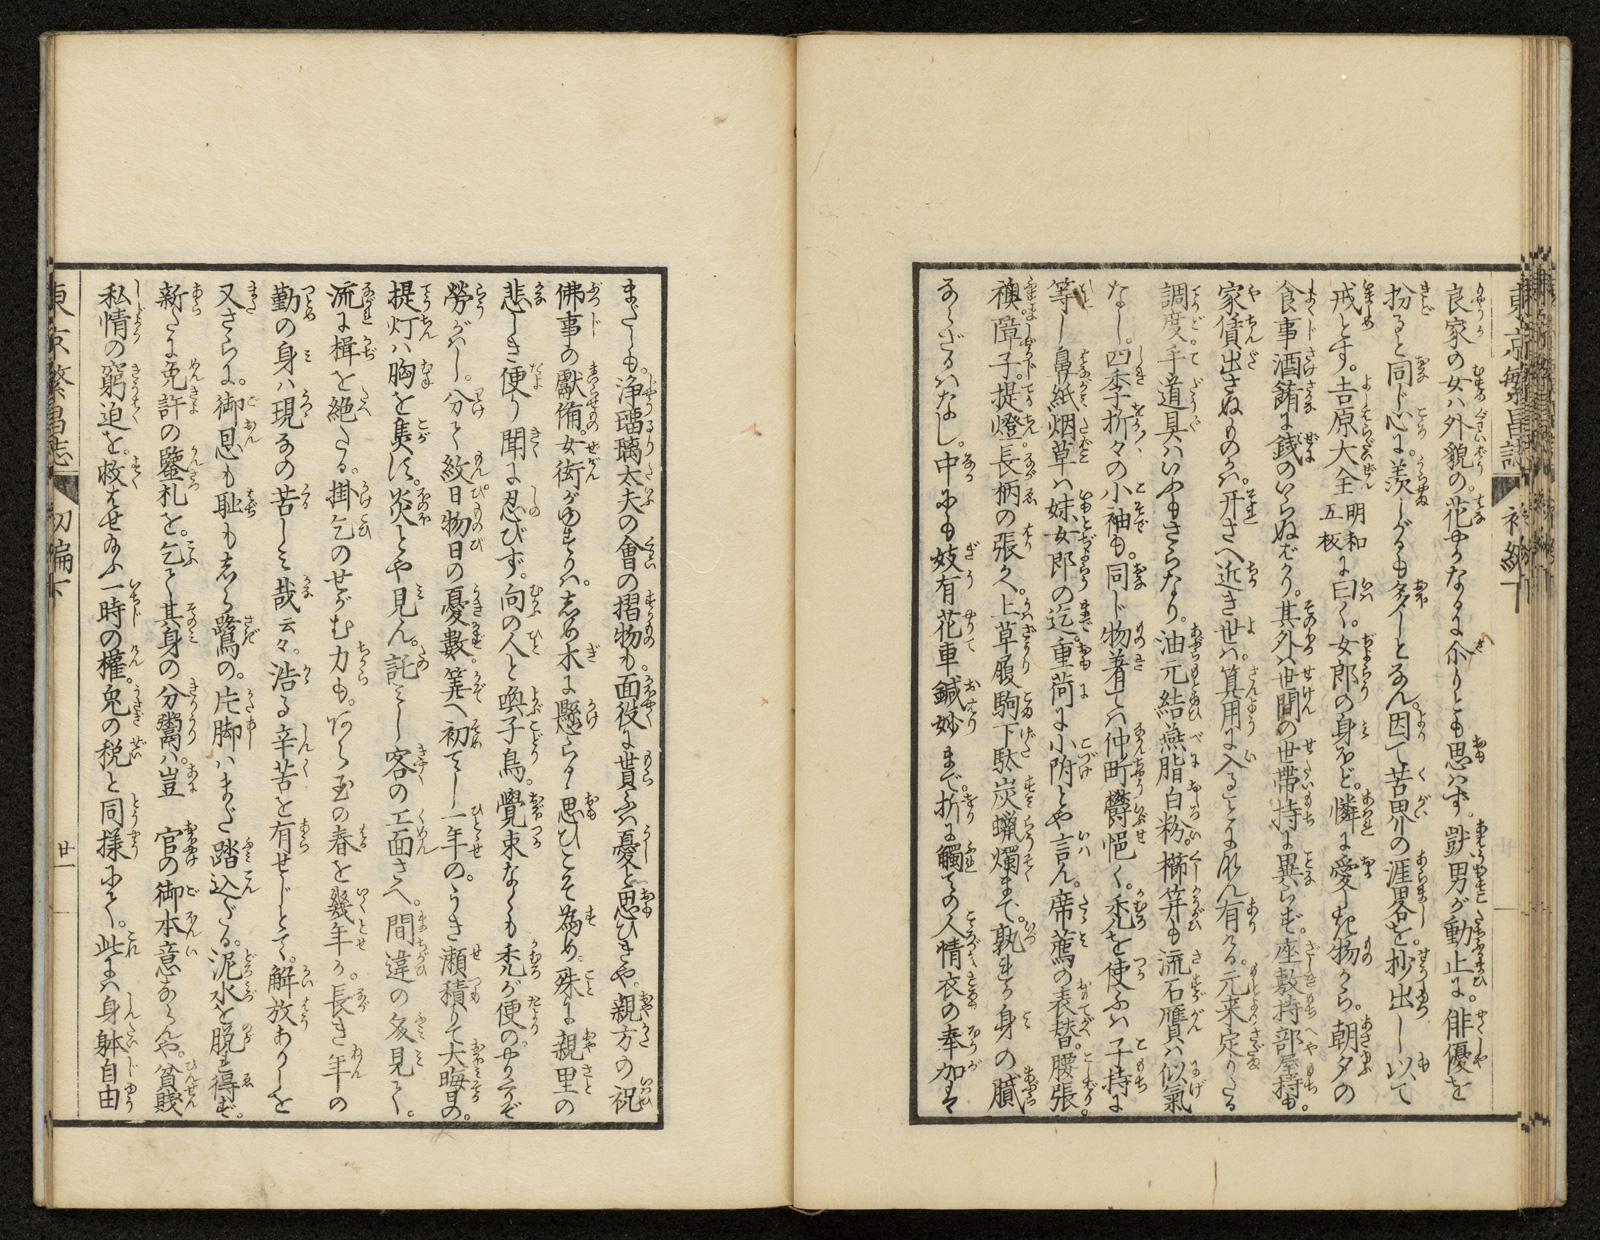 東京繁昌誌 初編下
良家の女ハ外貌の。花やかなるに介りとも思ハず。野男が動止に。俳優を
扮ると同じ心に。羨しがるも多しとなん。因て苦界の涯畧を。抄出し以て
戒とす。吉原大全明和五板に曰く。女郎の身ほど。憐に愛しき物から。朝夕の
食事酒餚に銭のいらぬばかり。其外ハ世間の世帯持に異らず。座敷持部屋持も。
家賃出さぬものか。开さへ近き世ハ。算用に入るとよ有ける。元来定りたる
調度。手道具ハいふもさらなり。油元結燕脂白粉。櫛笄も流石贋ハ似氣
なし。四季折々の小袖も。同じ物着てハ仲町欝悒く。禿を使ふハ子持に
等し。鼻紙烟草ハ妹女郎の迄。重荷に小附とや言ん。席薦の表替。腰張
襖障子。提燈。長柄の張かへ。上草履駒下駄炭蝋燭まで。孰れか身の膩
ならざるハなし。中にも妓有花車鍼妙まで。折に觸ての人情衣の奉加は
またしも。浄瑠璃太夫の會の摺物も。面役に貰ふハ憂しと思ひきや。親方の祝
佛事の獻備。女衒がゆすりハ。志め木に懸らる思ひこそ為め。殊に親里の
悲しき便り聞に忍びず。向の人と喚子鳥。覺束なくも禿が便の。やるぞ
勞がハし。分て紋日物日の憂數。筭へ初てし一年の。うき瀬積りて大晦日の。
提灯ハ胸を焦す。炎とや見ん。託みし客の工面さへ。間違の文見て。
流に楫を絶たる。掛乞のせがむ力も。あら玉の春を幾年か。長き年の
勤の身ハ現なの苦しミ哉云々。浩る辛苦を有せじとて。解放ありしを
又さらに。御恩も耻もしら鷺の。片脚ハまだ踏込たる。泥水を脱も得ず。
新たに免許の鑒札を。乞て其身の分鬻ハ。豈 官の御本意ならんや。貧賤
私情の窮迫を。救はせ給ふ一時の權。兎の税と同様にて。此にハ身躰自由
東京繁昌誌 初編下 廿一